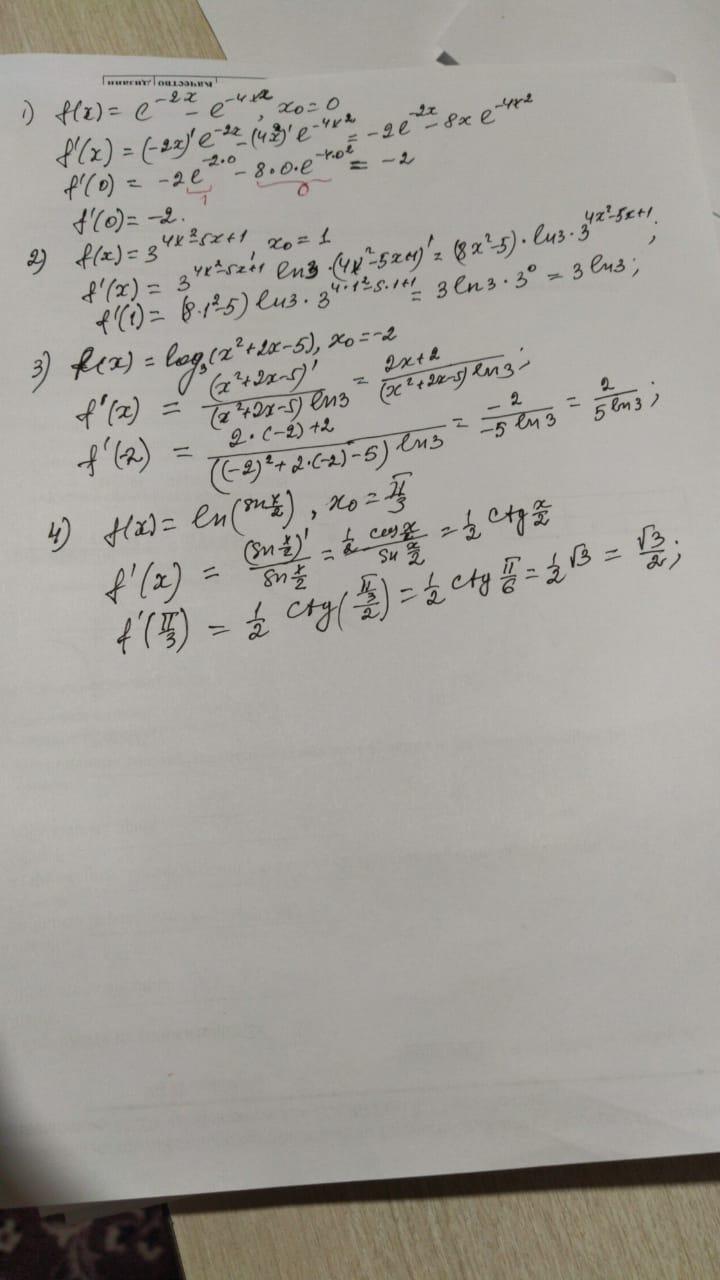 1) f(x) = e^{-2x} - e^{-4x^2}, x_0 = 0
f'(x) = (-2x)' e^{-2x} - (4x^2)' e^{-4x^2} = -2e^{-2x} - 8x e^{-4x^2}
f'(0) = -2e^{-2·0} - 8·0·e^{-4·0^2} = -2
1 0
f'(0) = -2.
2) f(x) = 3^{4x^2-5x+1}, x_0 = 1
f'(x) = 3^{4x^2-5x+1} ln3 · (4x^2-5x+1)' = (8x^2-5) · ln3 · 3^{4x^2-5x+1};
f'(1) = (8·1^2-5) ln3 · 3^{4·1^2-5·1+1} = 3 ln3 · 3^0 = 3 ln3;
3) f(x) = log_3(x^2+2x-5), x_0 = -2
f'(x) = \frac{(x^2+2x-5)'}{(x^2+2x-5) ln3} = \frac{2x+2}{(x^2+2x-5) ln3};
f'(-2) = \frac{2·(-2)+2}{((-2)^2+2·(-2)-5) ln3} = \frac{-2}{-5 ln3} = \frac{2}{5 ln3};
4) f(x) = ln(sin\frac{x}{2}), x_0 = \frac{π}{3}
f'(x) = \frac{(sin\frac{x}{2})'}{sin\frac{x}{2}} = \frac{\frac{1}{2} cos\frac{x}{2}}{sin\frac{x}{2}} = \frac{1}{2} ctg\frac{x}{2}
f'(\frac{π}{3}) = \frac{1}{2} ctg(\frac{\frac{π}{3}}{2}) = \frac{1}{2} ctg\frac{π}{6} = \frac{1}{2}√3 = \frac{√3}{2};